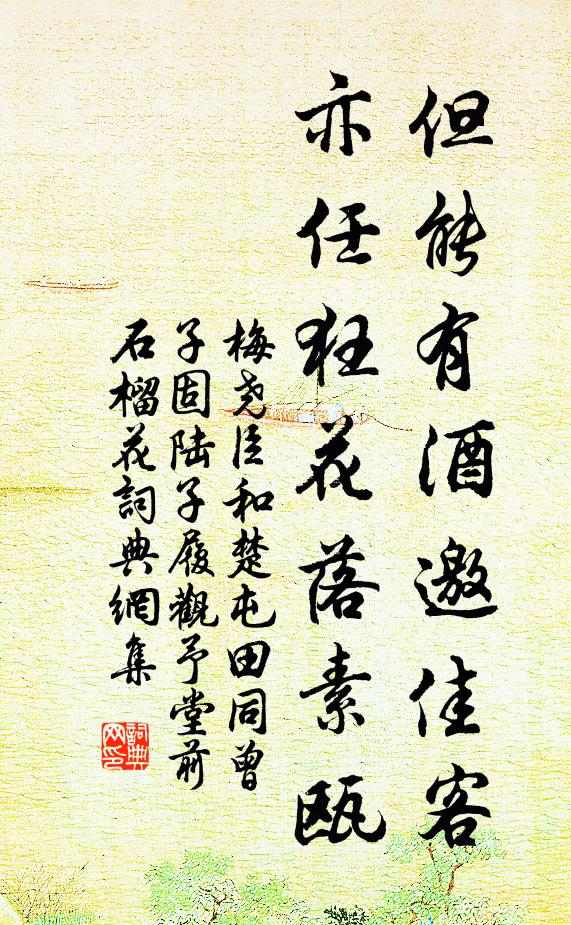 但能有酒邀佳客
亦任狂花落素瓯
梅尧臣和楚屯田同曾
子固陆子履觀予堂前
石榴花詞典網集
詞典
网印